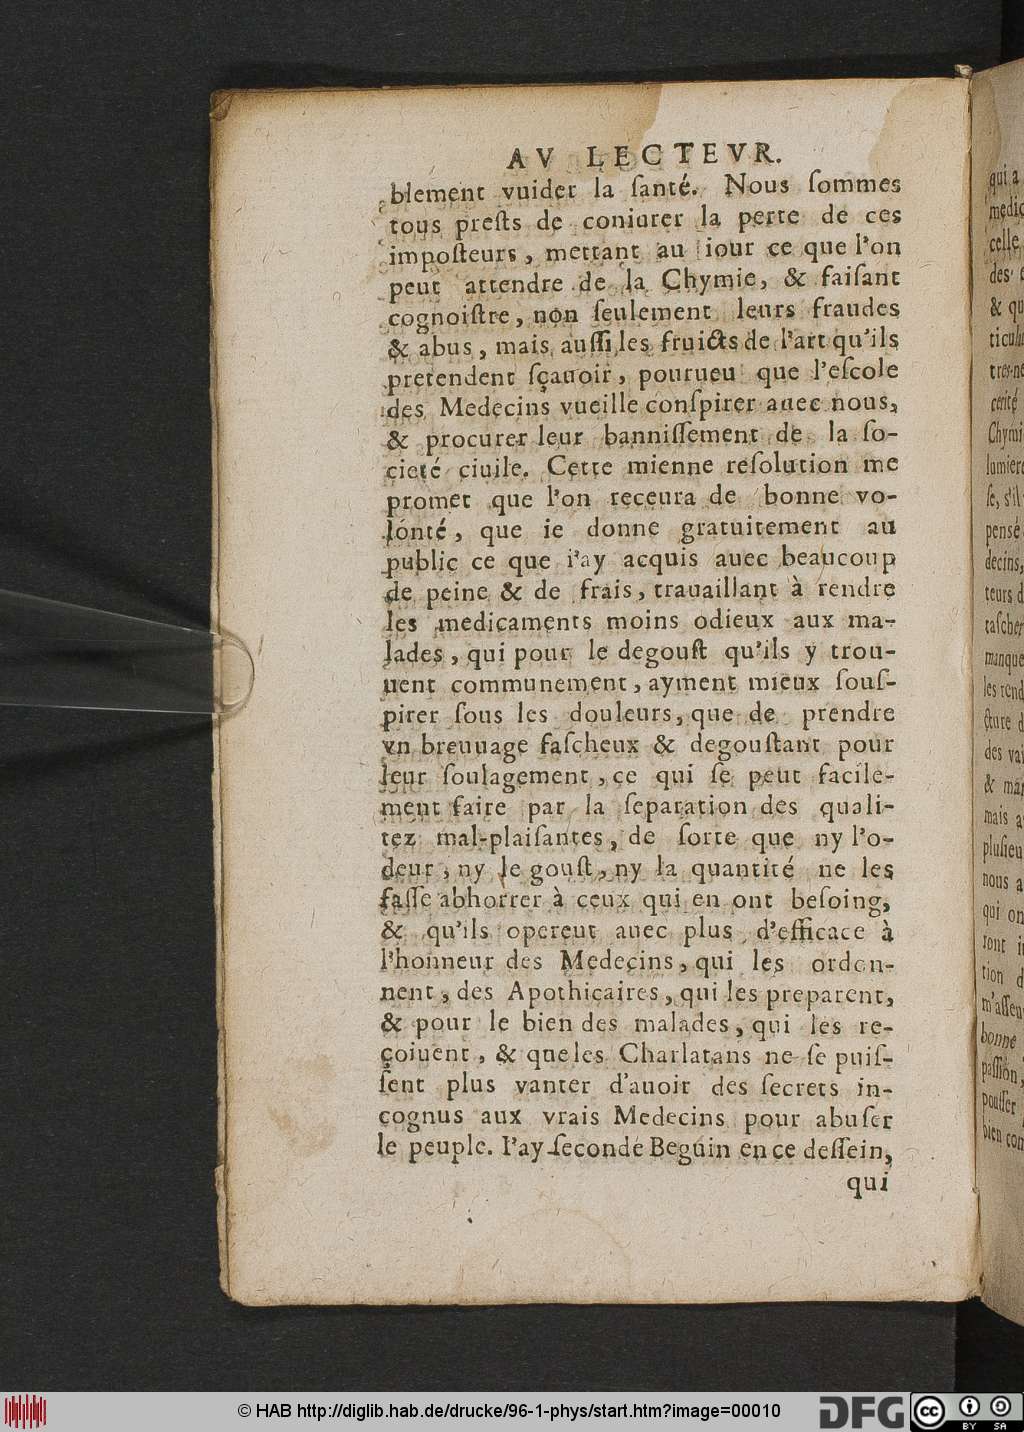 AV LECTEVR.
blement vuider la ſanté. Nous ſommes
tous preſts de coniurer la perte de ces
impoſteurs, mettant au iour ce que l'on
peut attendre de la Chymie, & faiſant
cognoiſtre, non ſeulement leurs fraudes
& abus, mais auſſi les fruicts de l'art qu'ils
pretendent ſçauoir, pourueu que l'eſcole
des Medecins vueille conſpirer auec nous,
& procurer leur banniſſement de la ſo-
cieté ciuile. Cette mienne reſolution me
promet que l'on receura de bonne vo-
lonté, que ie donne gratuitement au
public ce que i'ay acquis auec beaucoup
de peine & de frais, trauaillant à rendre
les medicaments moins odieux aux ma-
lades, qui pour le degouſt qu'ils y trou-
uent communement, ayment mieux ſouſ-
pirer ſous les douleurs, que de prendre
vn breuuage faſcheux & degouſtant pour
leur ſoulagement, ce qui ſe peut facile-
ment faire par la ſeparation des quali-
tez mal-plaiſantes, de ſorte que ny l'o-
deur, ny le gouſt, ny la quantité ne les
faſſe abhorrer à ceux qui en ont beſoing,
& qu'ils opereut auec plus d'efficace à
l'honneur des Medecins, qui les ordon-
nent, des Apothicaires, qui les preparent,
& pour le bien des malades, qui les re-
çoiuent, & que les Charlatans ne ſe puiſ-
ſent plus vanter d'auoir des ſecrets in-
cognus aux vrais Medecins pour abuſer
le peuple. I'ay ſecondé Beguin en ce deſſein,
qui
qui a
medic
celle
des
& qu
ticuli
tres-ne
cerité
Chymi
lumiere
ſe, s'il
penſé
decins,
teurs d
taſcher
manque
les rend
cture d
des vai
& ma
mais a
pluſieu
nous a
qui on
ront i
tion d
m'aſſeu
bonne
paſſion,
pouſſer
bien con
© HAB http://diglib.hab.de/drucke/96-1-phys/start.htm?image=00010
DFG
cc
BY SA